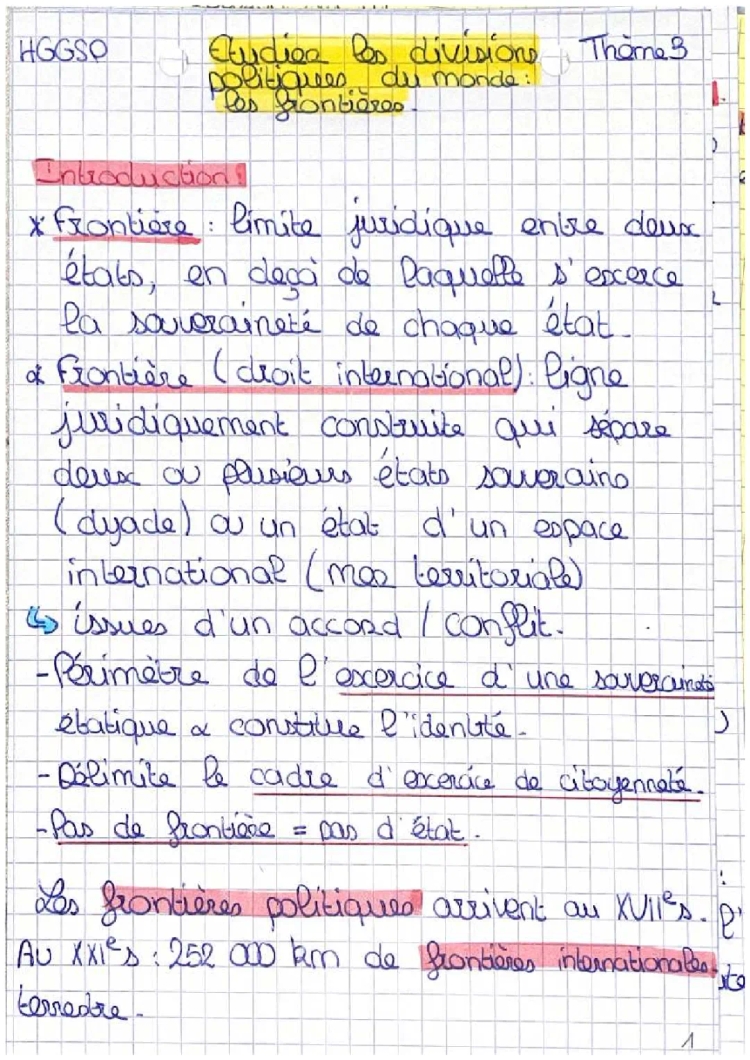 HGGSP
Etudier les divisions
politiques du monde :
les frontières.
Thème 3
Introduction :
* Frontière : limite juridique entre deux
états, en deçà de laquelle s'exerce
la souveraineté de chaque état.
* Frontière (droit international) : ligne
juridiquement construite qui sépare
deux ou plusieurs états souverains
(dyade) ou un état d'un espace
international (mer territoriale)
↳ issues d'un accord / conflit.
- Périmètre de l'exercice d'une souveraineté
étatique & constitue l'identité.
- Délimite le cadre d'exercice de citoyenneté.
- Pas de frontière = pas d'état.
Les frontières politiques arrivent au XVIIe s.
Au XXIe s : 252 000 km de frontières internationales
terrestre.
1